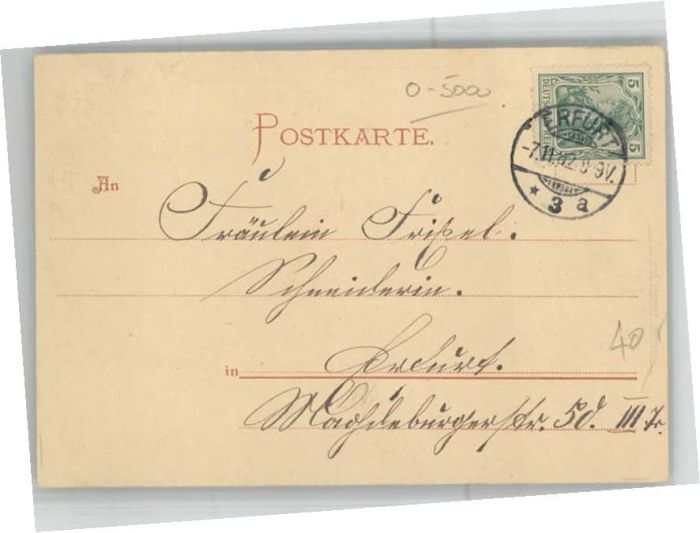 0-5000
5 DEUTSCHES 5
POSTKARTE.
ERFURT
-7.11.02.8-9V.
* 3 a
An
Fräulein Frißel.
Schneiderin.
40
in Erfurt.
Magdeburgerstr. 50. III Tr.